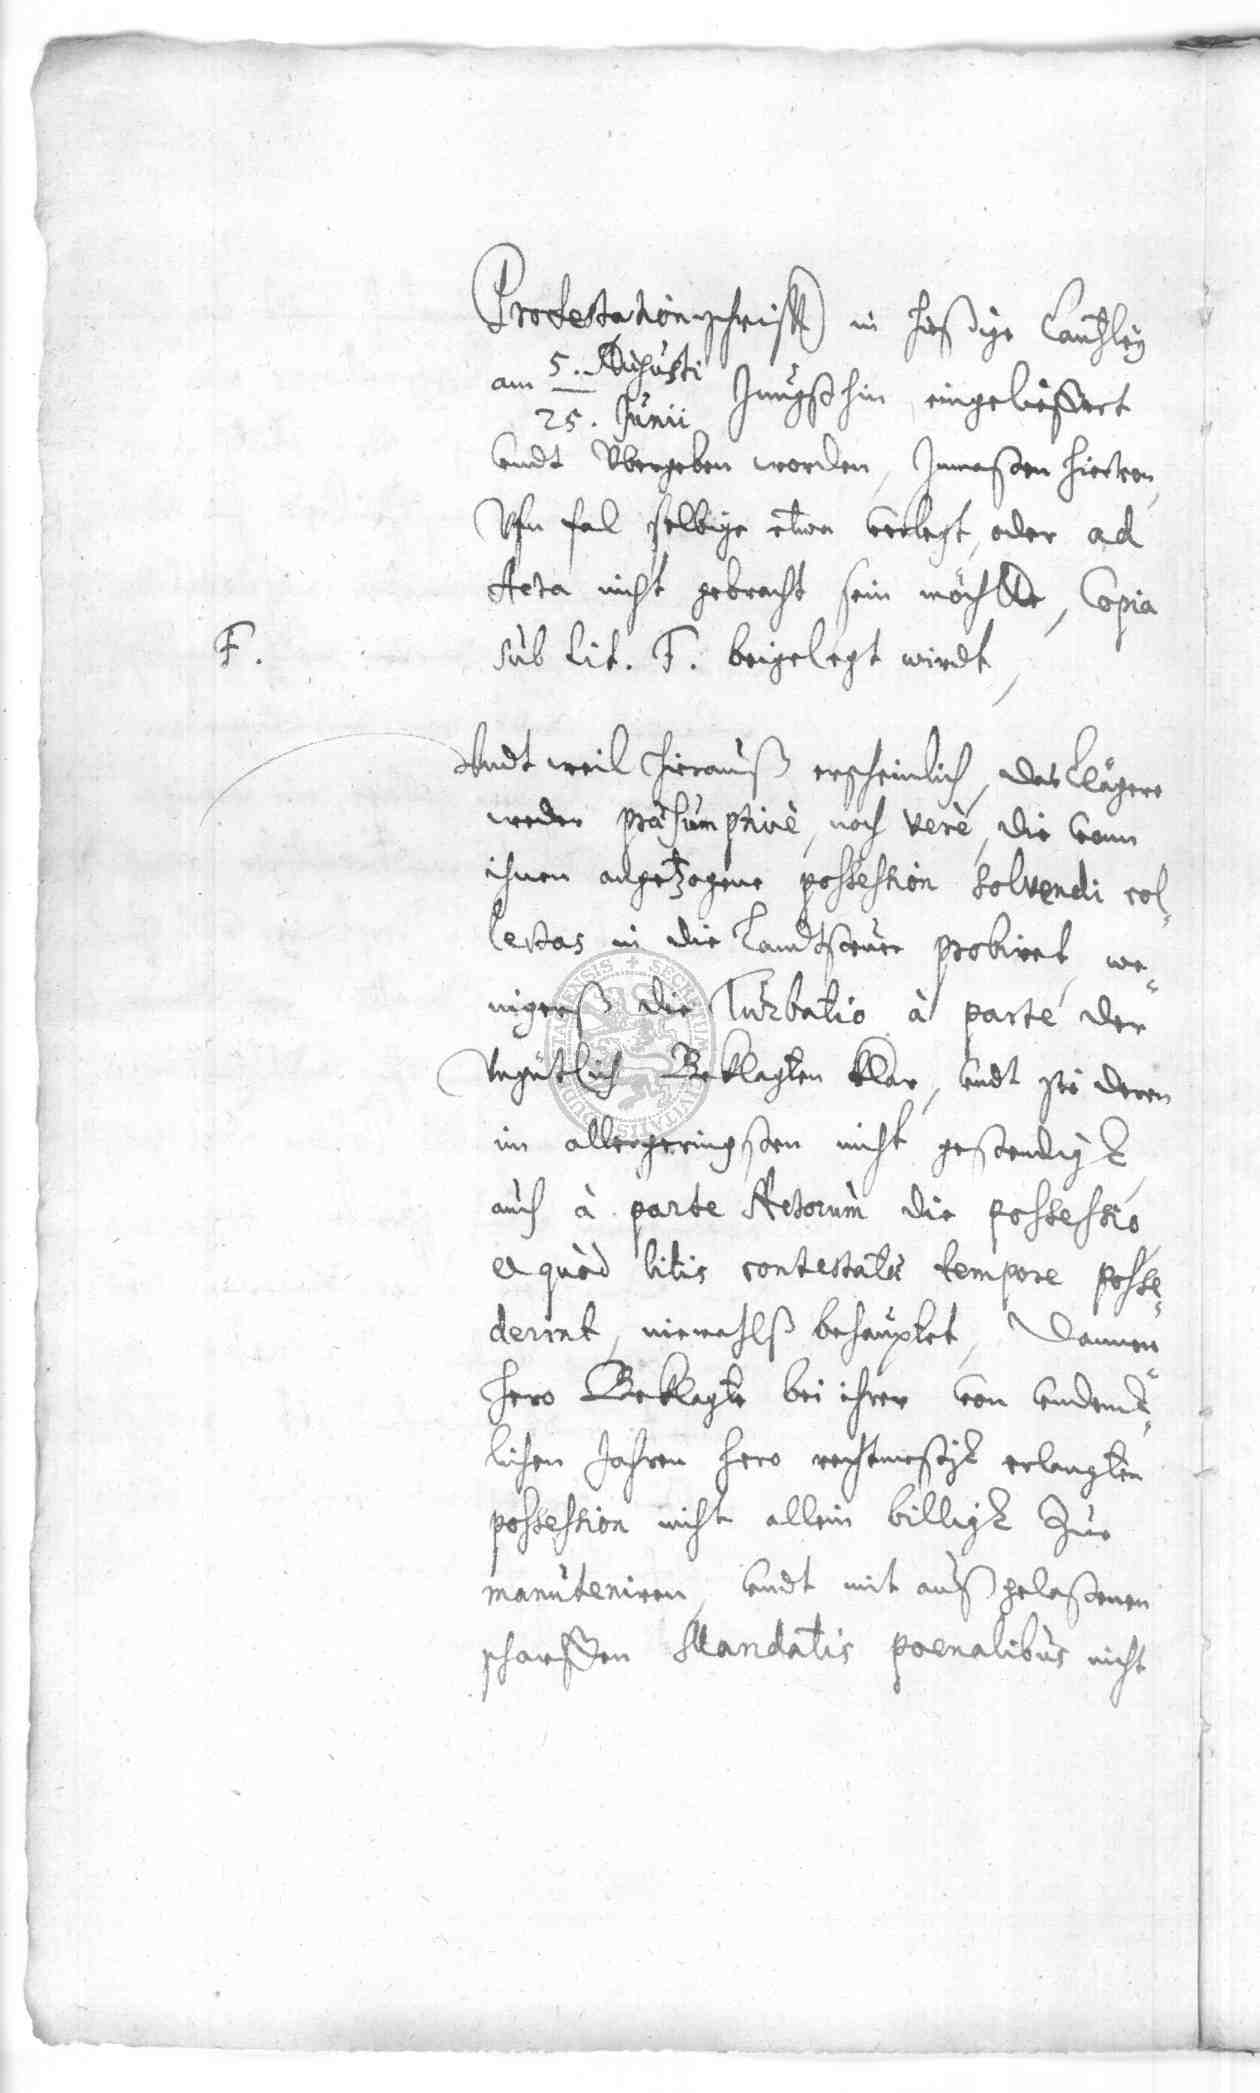 Protestationschrifft in hießige Cantzley
am 5. Augusti
25. Junii Jüngsthin, eingelieffert
undt Übergeben worden, Inmaßen hiervon,
Ufn fal selbige etwa verlegt, oder ad
Acta nicht gebracht sein möchtte, Copia
F.
sub Lit. F. beigelegt wirdt,
Undt weil hierauß erscheinlich, das Clägere
weder præsumptivè, noch verè, die vonn
ihnen angetzogene possession solvendi col-
lectas in die Landtsteuer probiret, we-
nigerß die Turbatio à parte der
Ungütlich Beklagten klar, undt sie deren
im allergeringsten nicht gestendigk,
auch à parte Actorum die possessio,
et quòd litis contestatæ tempore posse-
derint, niemahlß behauptet, Dannen-
hero Beklagte bei ihrer von undenck-
lichen Jahren hero rechtmeßigk erlangten
possession nicht allein billigk Zue
manuteniren, undt mit außgelaßenen
scharffen Mandatis poenalibus nicht
SECRETUM CIVITATIS